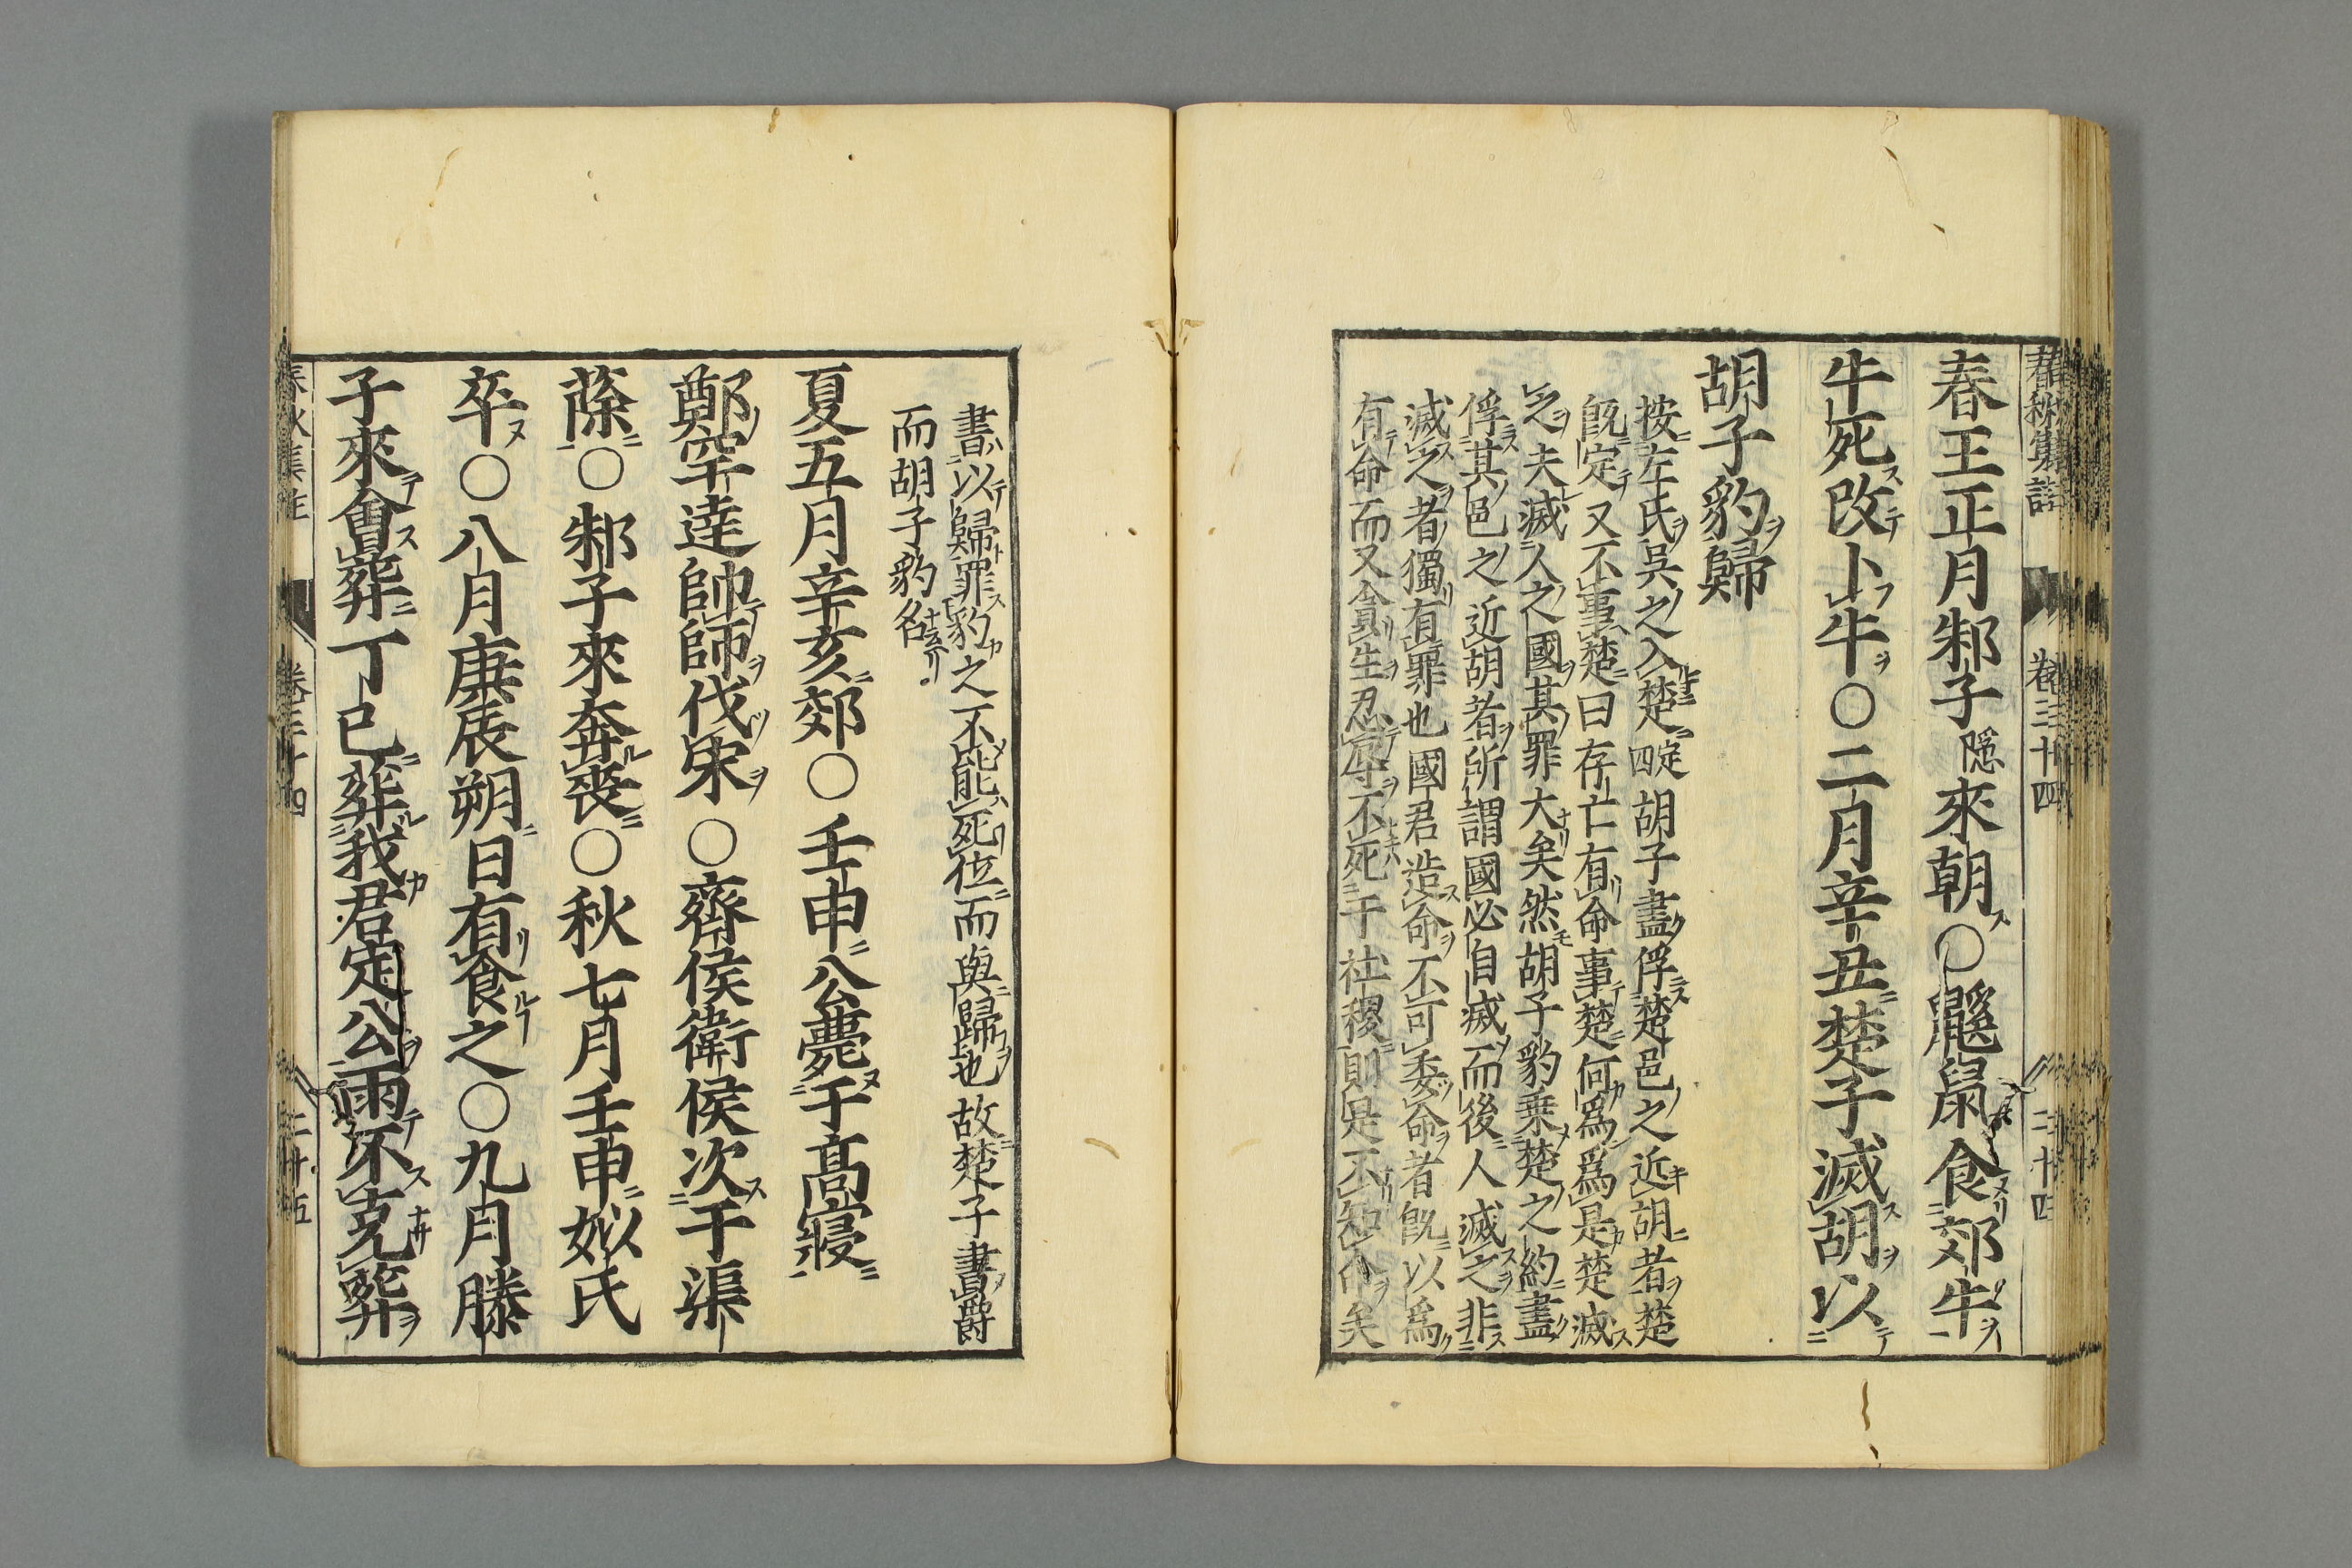 春王正月邾子隱來朝○鼷鼠食郊牛
牛死改卜牛○二月辛丑楚子滅胡以
胡子豹歸
按左氏吳之入楚定四胡子盡俘楚邑之近胡者楚
旣定又不事楚曰存亡有命事楚何爲爲是楚滅
之夫滅人之國其罪大矣然胡子豹乗楚之約盡
俘其邑之近胡者所謂國必自滅而後人滅之非
滅之者獨有罪也國君造命不可委命者旣以爲
有命而又貪生忍辱不死于社稷則是不知命矣
卷三十四
二十四
書以歸罪豹之不能死位而與歸也故楚子書爵
而胡子豹名
夏五月辛亥郊○壬申公薨于高寢
鄭罕達帥師伐宋○齊侯衛侯次于渠
蒢○邾子來奔喪○秋七月壬申姒氏
卒○八月庚辰朔日有食之○九月滕
子來會葬丁巳葬我君定公雨不克葬
春秋集註
卷三十四
二十五